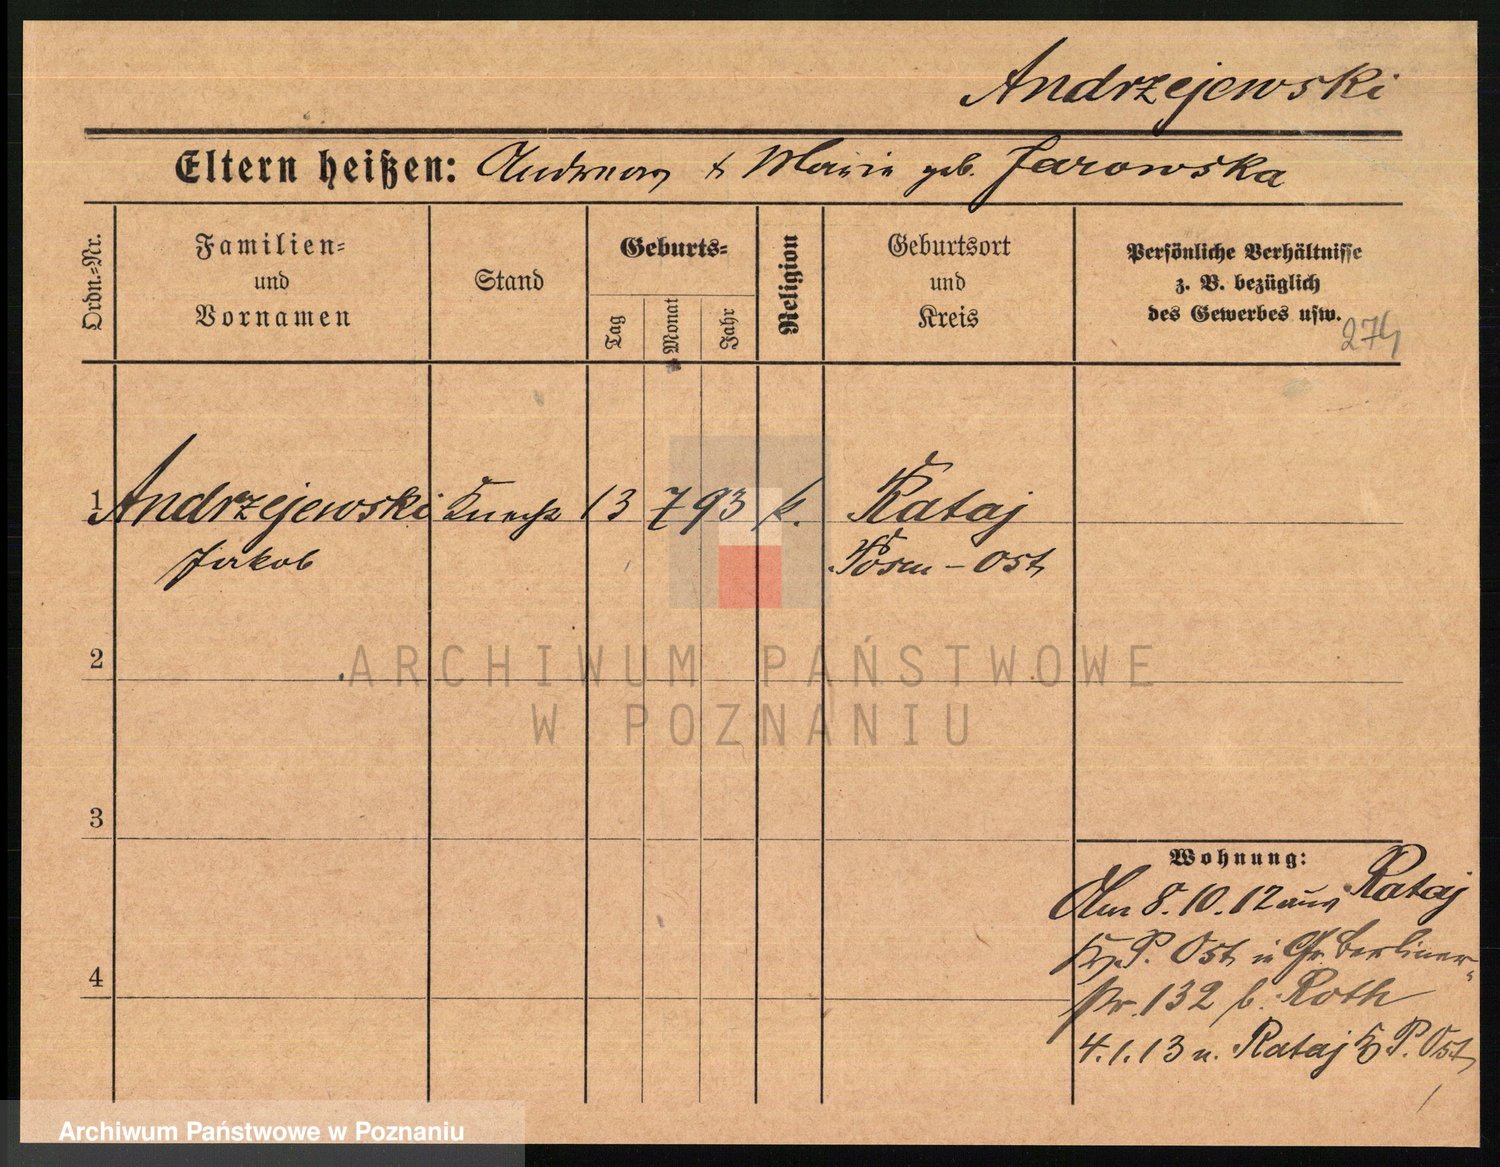 Andrzejewski
Eltern heißen: Andreas & Marie geb. Jarowska
Ordn.-Nr.
Familien-
und
Vornamen
Stand
Geburts-
Tag
Monat
Jahr
Religion
Geburtsort
und
Kreis
Persönliche Verhältnisse
z. B. bezüglich
des Gewerbes usw.
274
1 Andrzejewski Knecht 13 7 93 k. Rataj
Jakob Posen-Ost
2
3
4
Wohnung:
Am 8.10.12 aus Rataj
P. Ost in Gr. Berliner-
str. 132 b. Roth
4.1.13 n. Rataj P. Ost
ARCHIWUM PAŃSTWOWE
W POZNANIU
Archiwum Państwowe w Poznaniu